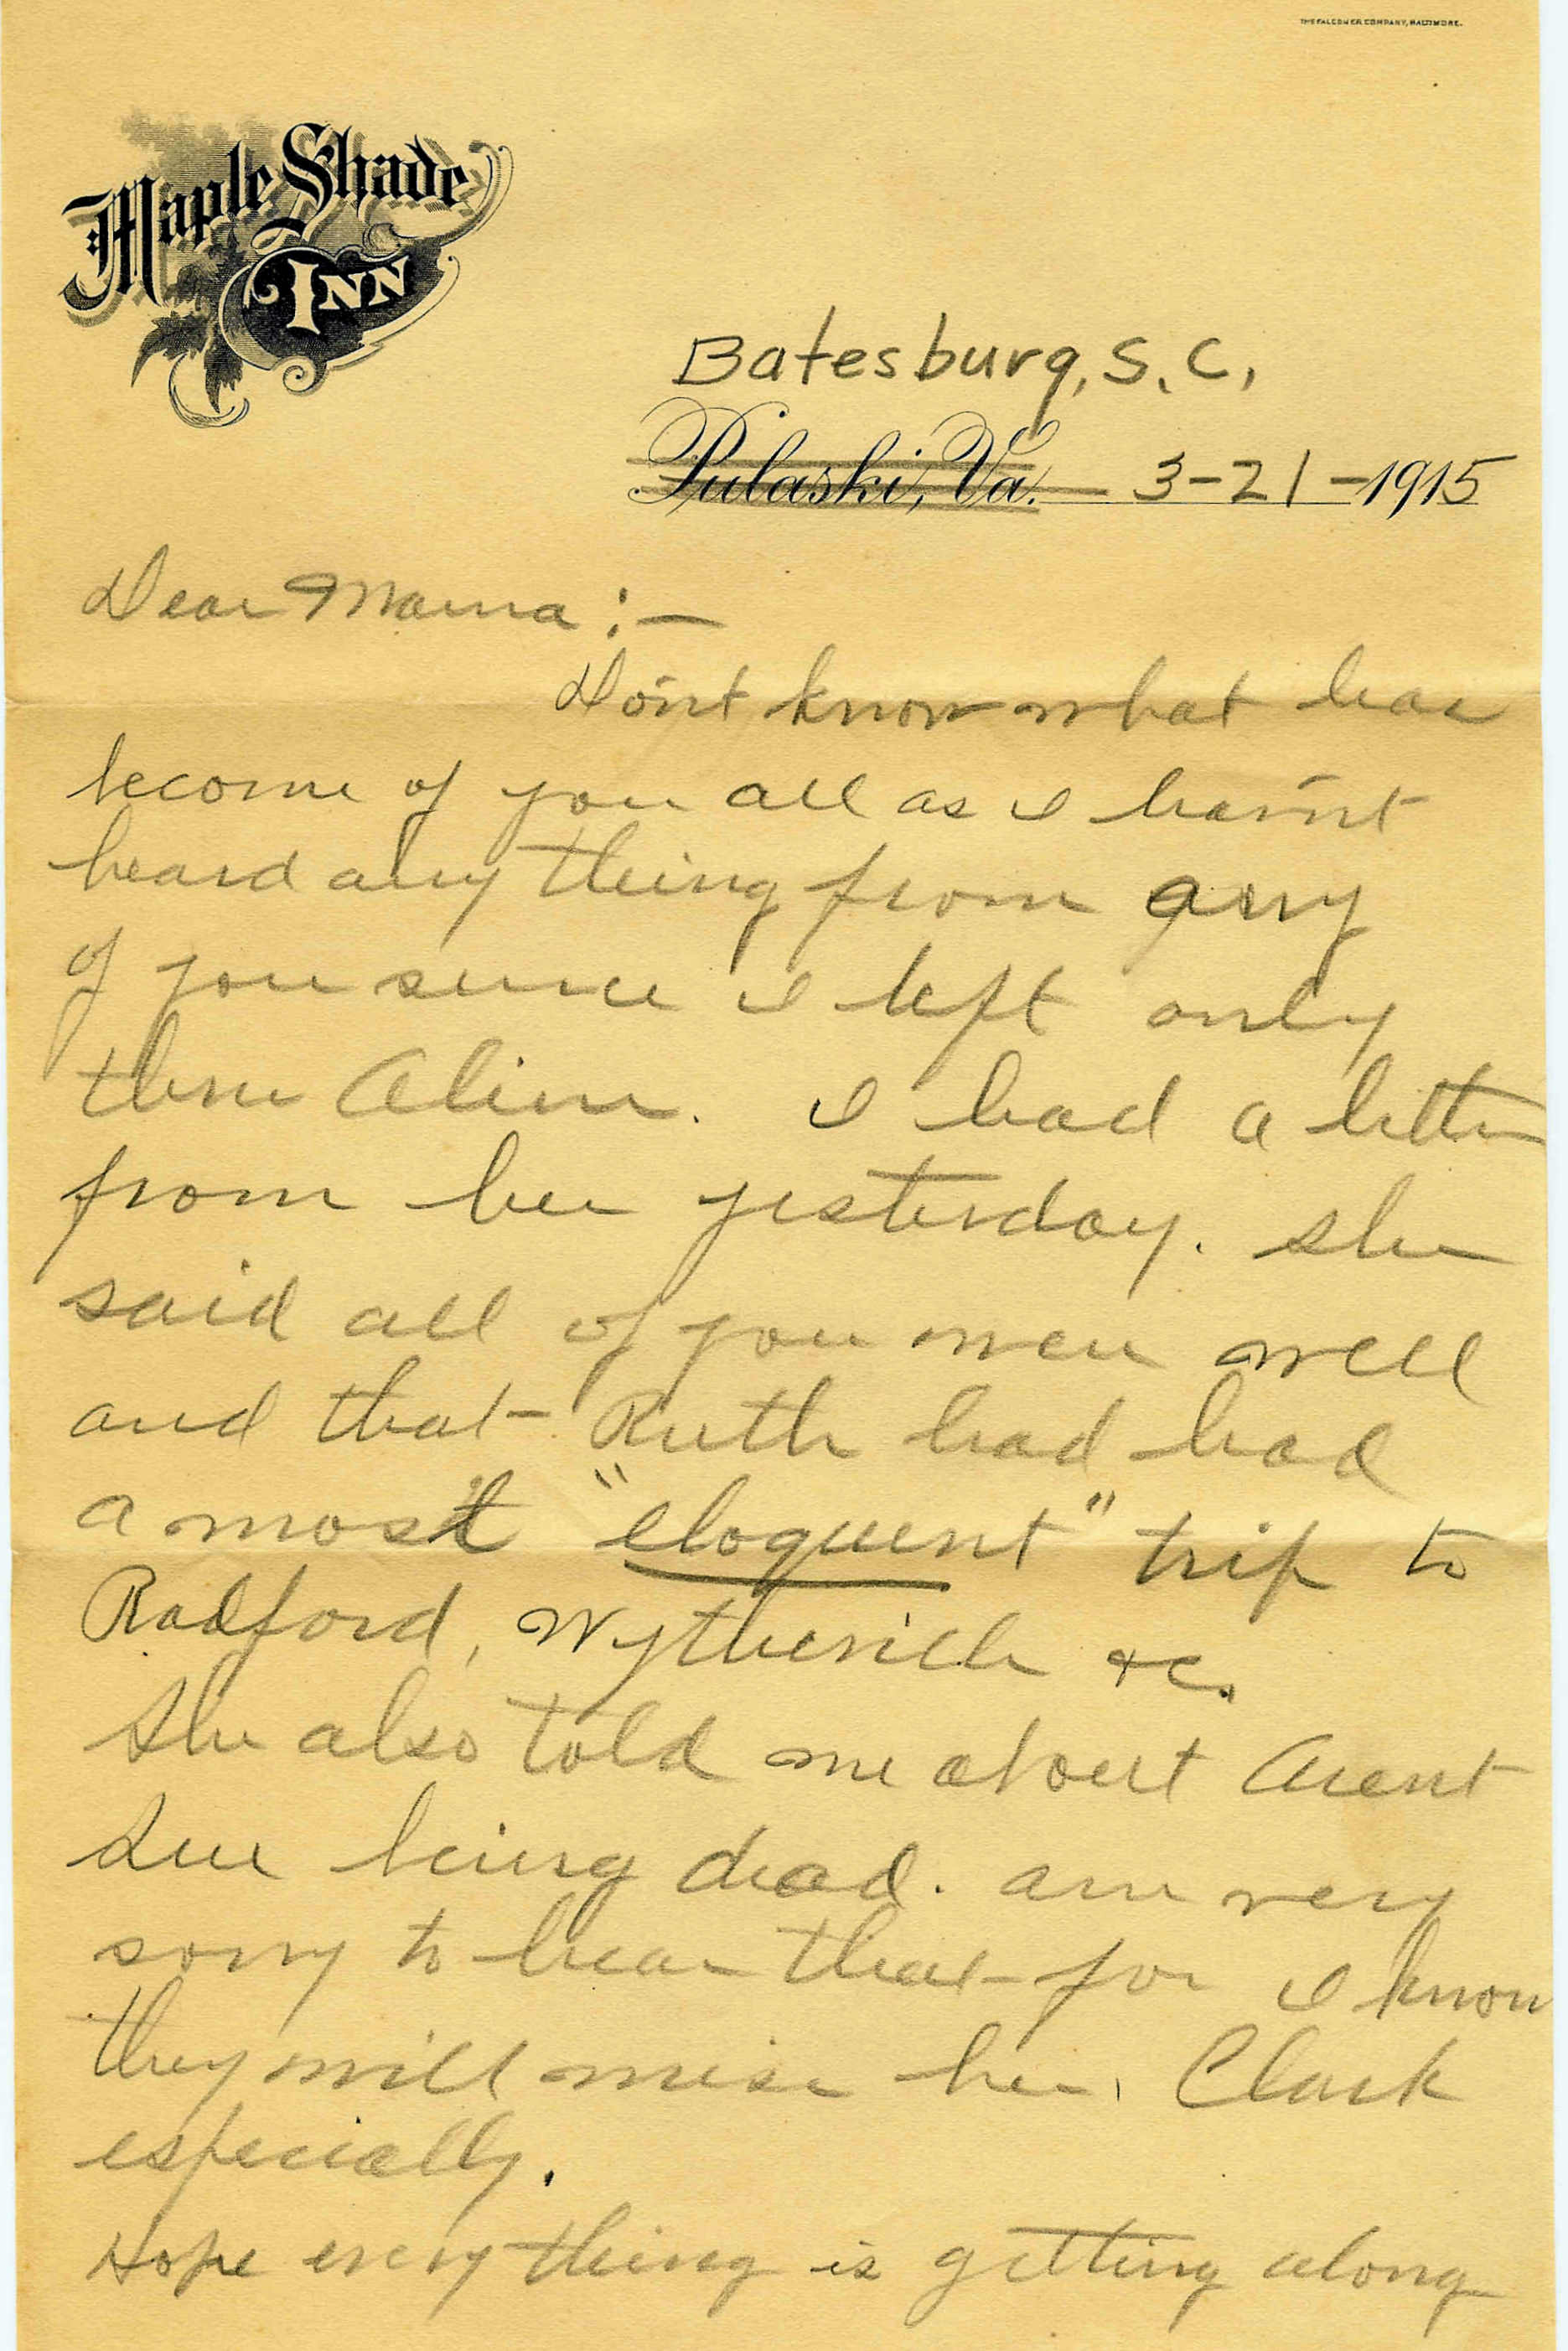 THE FALCONER COMPANY, BALTIMORE.
Maple Shade
INN
Batesburg, S. C,
Pulaski, Va. 3-21-1915
Dear Mama:—
Don't know what has
become of you all as I hav'nt
heard any thing from any
of you since I left only
thru Aline. I had a letter
from her yesterday. She
said all of you were well
and that Ruth had had
a most "eloquent" trip to
Radford, Wytheville &c.
She also told me about Aunt
Sue being dead. am very
sorry to hear that for I know
they will miss her, Clark
especially.
Hope every thing is getting along